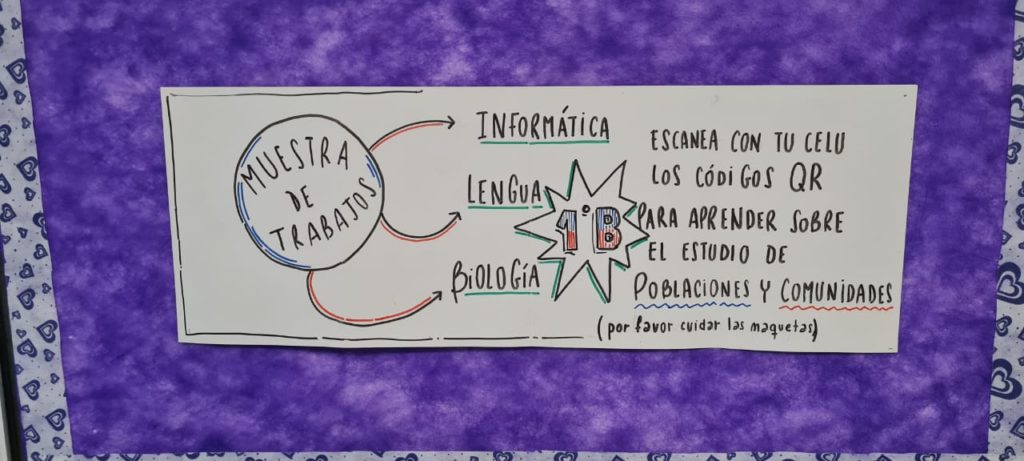 MUESTRA
DE
TRABAJOS
INFORMÁTICA
LENGUA
BIOLOGÍA
1° B
ESCANEA CON TU CELU
LOS CÓDIGOS QR
PARA APRENDER SOBRE
EL ESTUDIO DE
POBLACIONES Y COMUNIDADES
(por favor cuidar las maquetas)